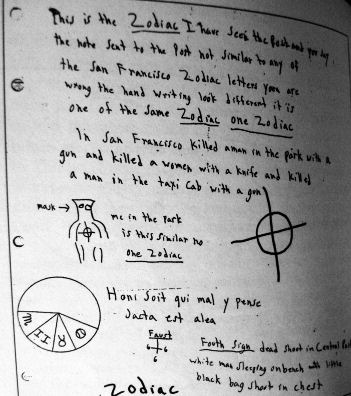 This is the Zodiac I have seen the Post and you say
the note Sent to the Post not similar to any of
the San Francisco Zodiac letters you are
wrong the hand writing look different it is
one of the same Zodiac one Zodiac
In San Francisco killed a man in the park with a
gun and killed a women with a knife and killed
a man in the taxi cab with a gun
mask →
me in the park
is this similar no
one Zodiac
Honi soit qui mal y pense
Jacta est alea
Faust
6 6
6
Fouth Sign dead shoot in Central Park
white man sleeping on bench with little
black bag shoot in chest
Zodiac